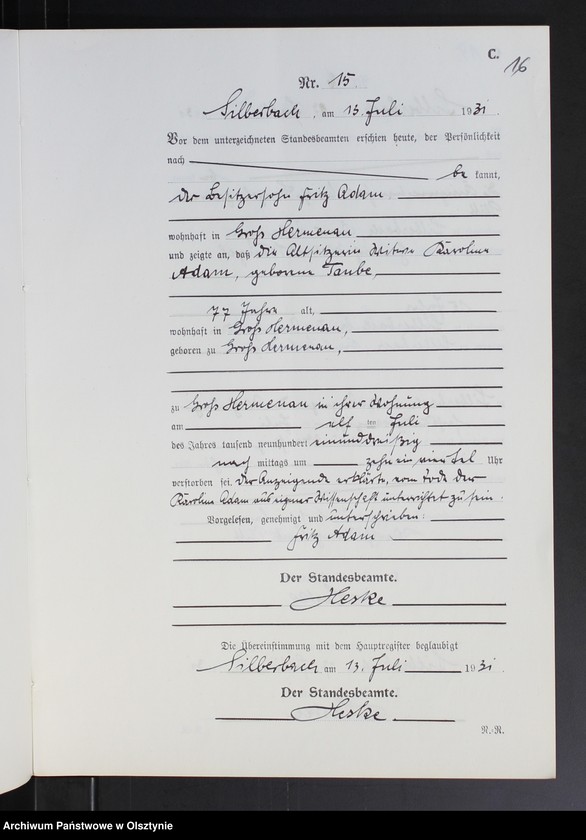 C.
16
Nr. 15
Silberbach, am 13. Juli 1931.
Vor dem unterzeichneten Standesbeamten erschien heute, der Persönlichkeit
nach be kannt,
der Besitzersohn Fritz Adam
wohnhaft in Groß Hermenau
und zeigte an, daß die Altsitzerin Witwe Karoline
Adam, geborene Taube,
77 Jahre alt,
wohnhaft in Groß Hermenau,
geboren zu Groß Hermenau,
zu Groß Hermenau in ihrer Wohnung
am elf ten Juli
des Jahres tausend neunhundert einunddreißig
nach mittags um zehn ein viertel Uhr
verstorben sei. Der Anzeigende erklärte, vom Tode der
Karoline Adam aus eigner Wissenschaft unterrichtet zu sein.
Vorgelesen, genehmigt und unterschrieben:
Fritz Adam
Der Standesbeamte.
Heske
Die Übereinstimmung mit dem Hauptregister beglaubigt
Silberbach am 13. Juli 1931.
Der Standesbeamte.
Heske
R.-R.
Archiwum Państwowe w Olsztynie